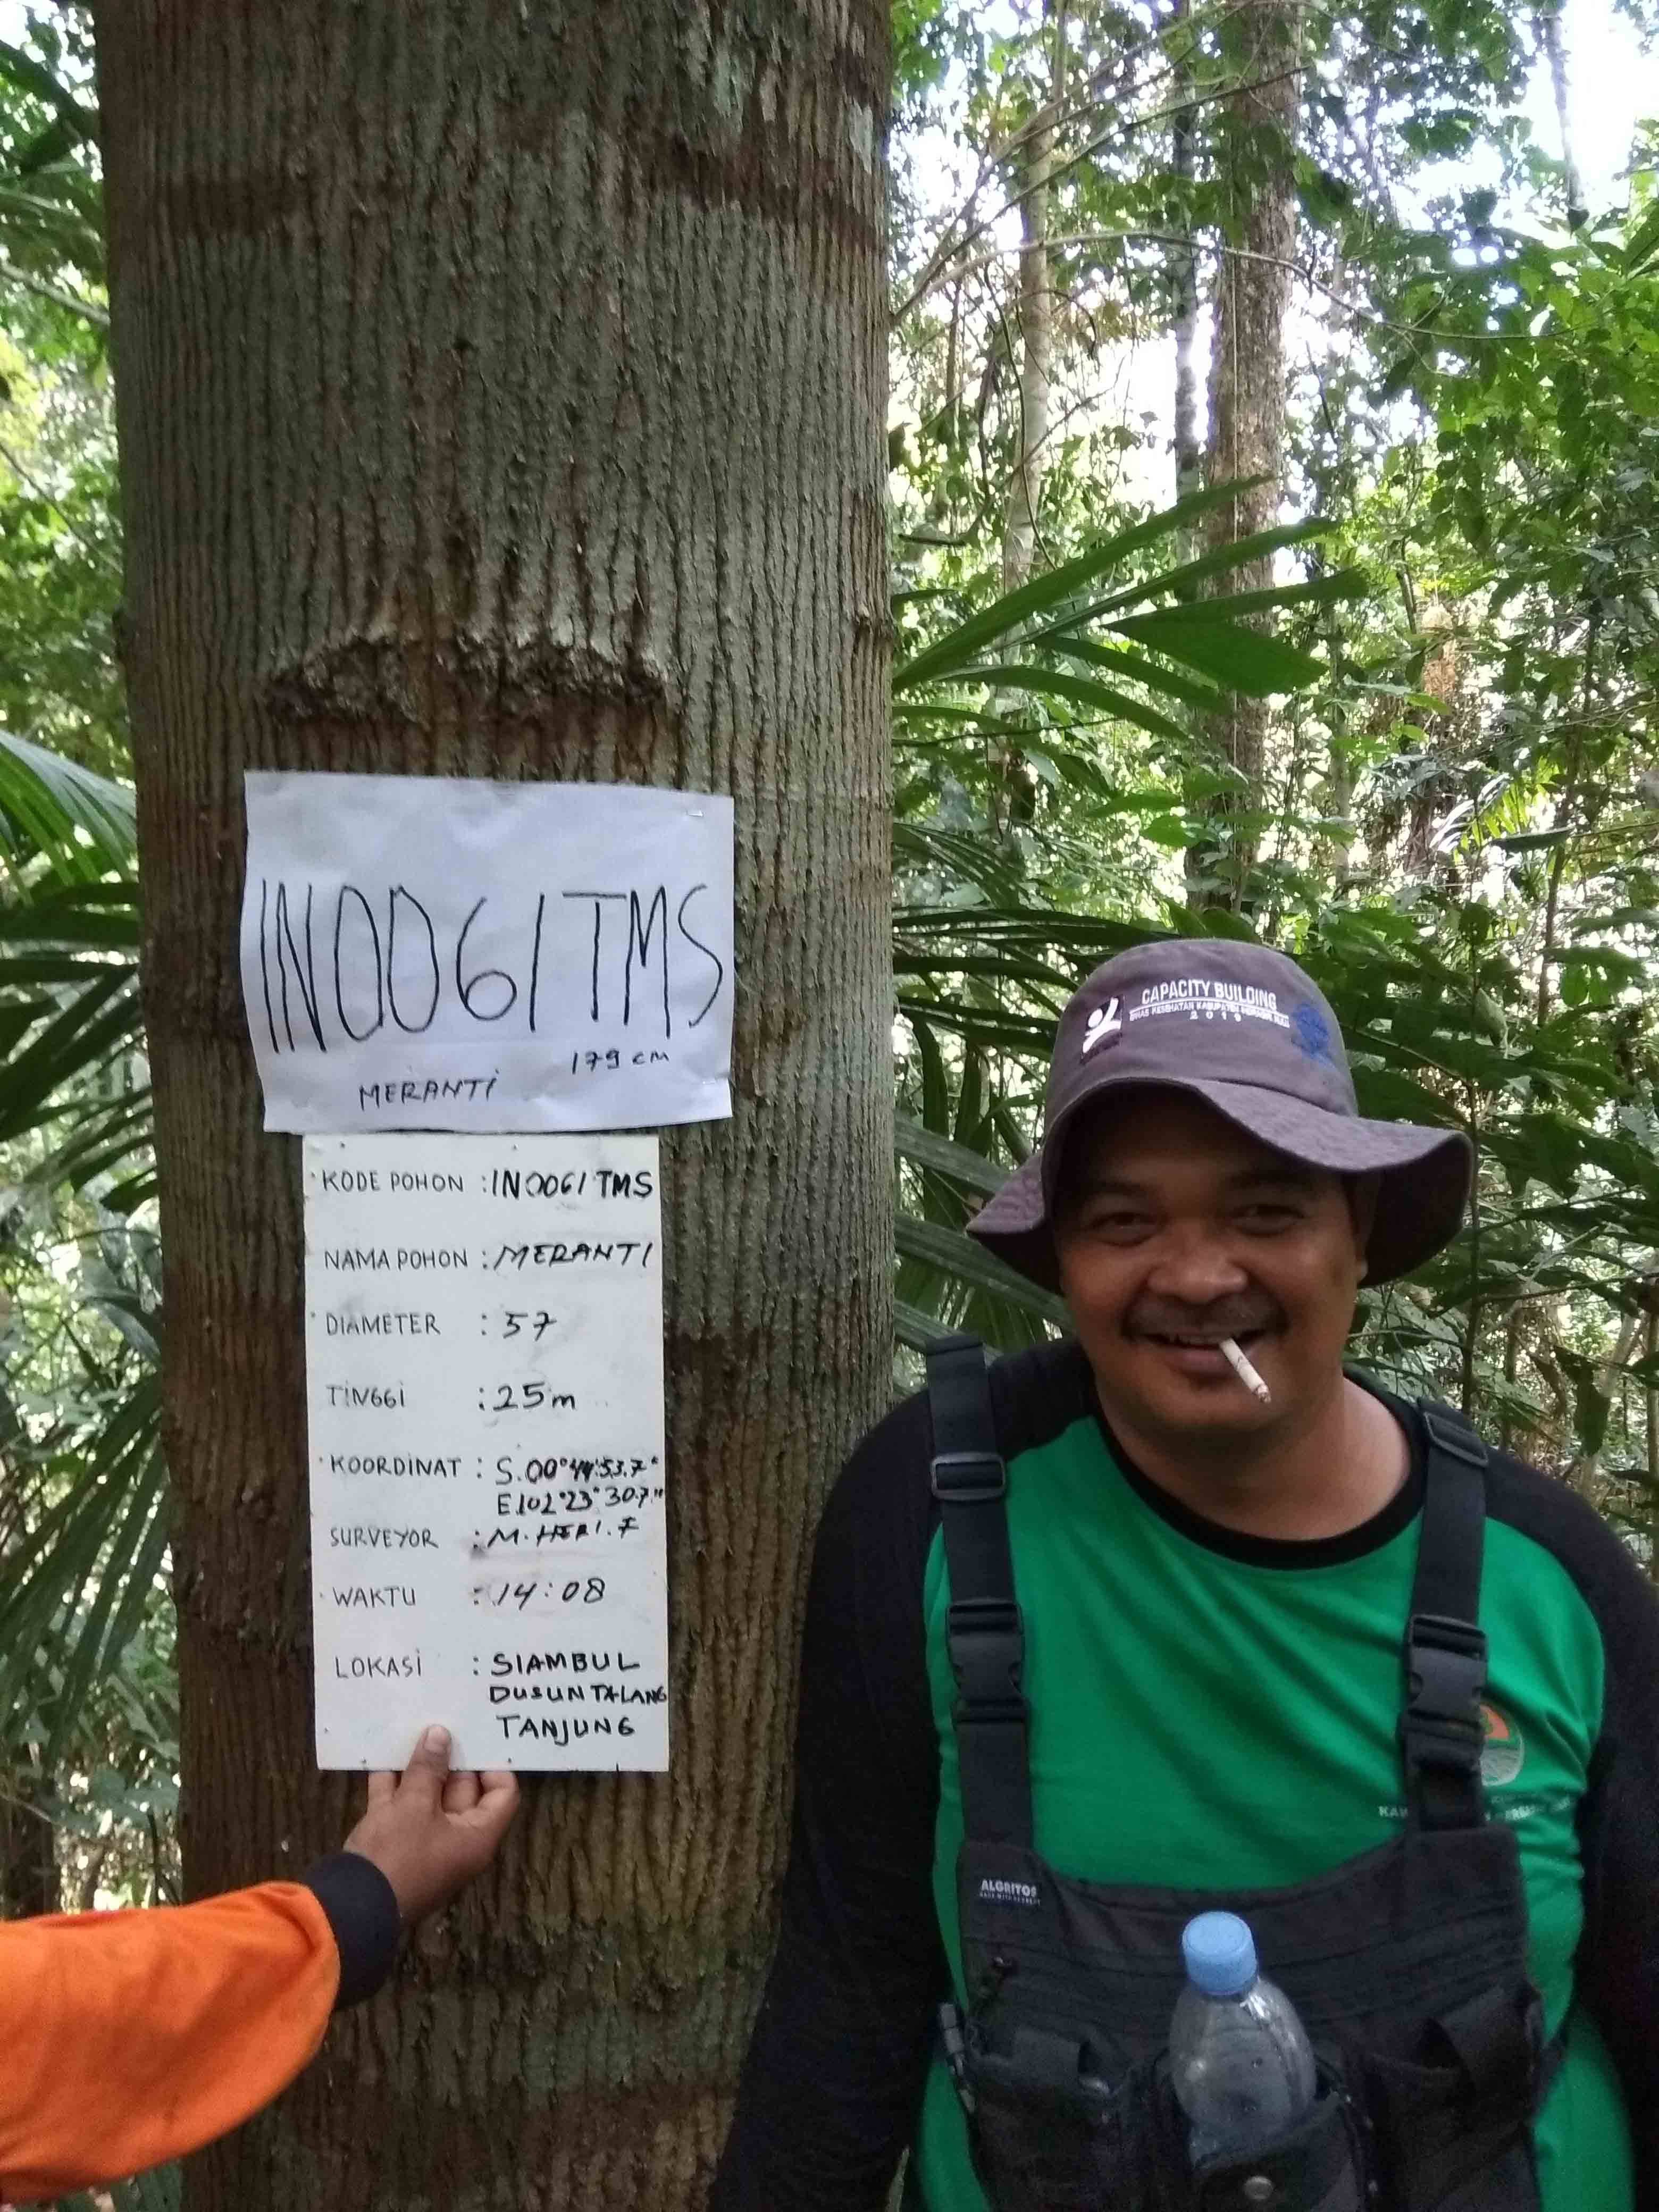 IN0061TMS
MERANTI 179 CM
KODE POHON : IN0061TMS
NAMA POHON : MERANTI
DIAMETER : 57
TINGGI : 25m
KOORDINAT : S.00°44'53.7"
E.102°23'30.7"
SURVEYOR : M.HERI.F
WAKTU : 14:08
LOKASI : SIAMBUL
DUSUN TALANG
TANJUNG
CAPACITY BUILDING
DINAS KESEHATAN KABUPATEN
2019
ALGRITOS